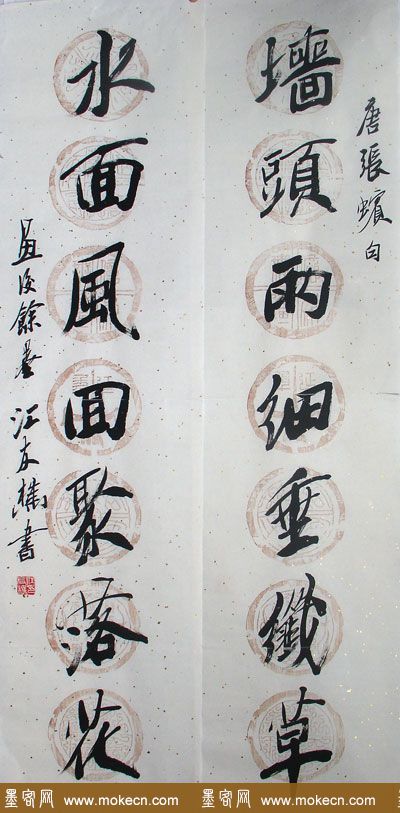 唐張蠙句
墻頭雨細垂纖草
水面風囬聚落花
画後餘墨 江友樵書
墨客网 www.mokecn.com 墨客网 www.mokecn.com